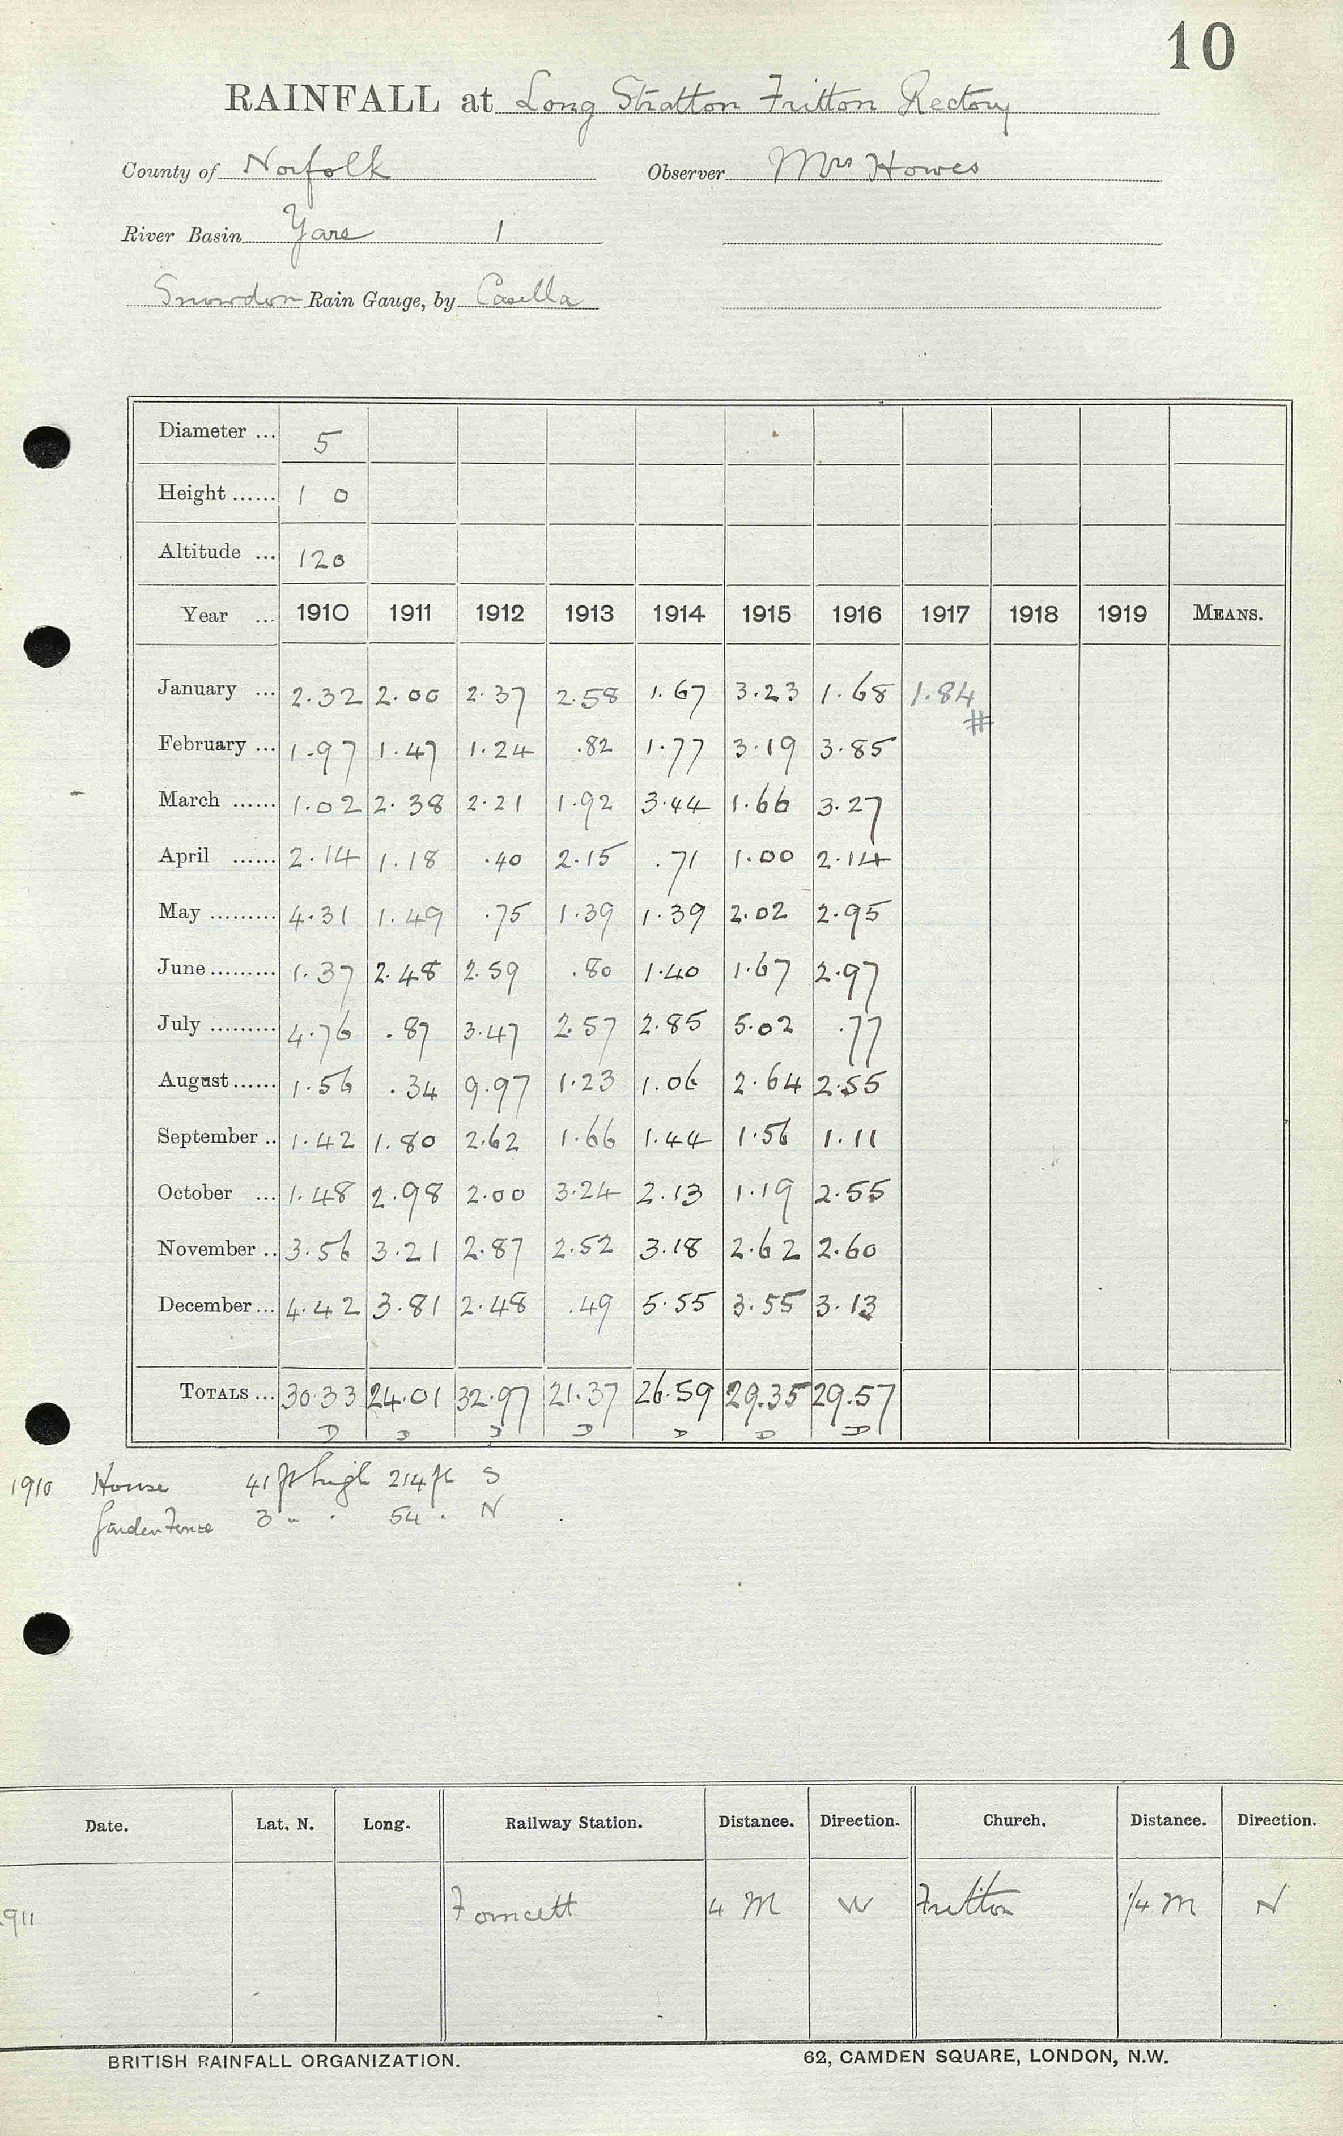 10
RAINFALL at Long Stratton Fritton Rectory
County of Norfolk Observer Mrs Howes
River Basin Yare 1
Snowdon Rain Gauge, by Casella
Diameter ... 5
Height ...... 1 0
Altitude ... 120
Year ... 1910 1911 1912 1913 1914 1915 1916 1917 1918 1919 MEANS.
January ... 2.32 2.00 2.37 2.58 1.67 3.23 1.68 1.84
#
February ... 1.97 1.47 1.24 .82 1.77 3.19 3.85
March ...... 1.02 2.38 2.21 1.92 3.44 1.66 3.27
April ...... 2.14 1.18 .40 2.15 .71 1.00 2.14
May ......... 4.31 1.49 .75 1.39 1.39 2.02 2.95
June ......... 1.37 2.48 2.59 .80 1.40 1.67 2.97
July ......... 4.76 .87 3.47 2.57 2.85 5.02 .77
August ...... 1.56 .34 9.97 1.23 1.06 2.64 2.55
September .. 1.42 1.80 2.62 1.66 1.44 1.56 1.11
October ... 1.48 2.98 2.00 3.24 2.13 1.19 2.55
November .. 3.56 3.21 2.87 2.52 3.18 2.62 2.60
December ... 4.42 3.81 2.48 .49 5.55 3.55 3.13
TOTALS ... 30.33 24.01 32.97 21.37 26.59 29.35 29.57
D D D D D D D
1910 House 41 ft high 214 ft S
Garden Fence 3 " . 54 . N
Date. Lat. N. Long. Railway Station. Distance. Direction. Church. Distance. Direction.
1911 Forncett 4 M W Fritton 1/4 M N
BRITISH RAINFALL ORGANIZATION. 62, CAMDEN SQUARE, LONDON, N.W.